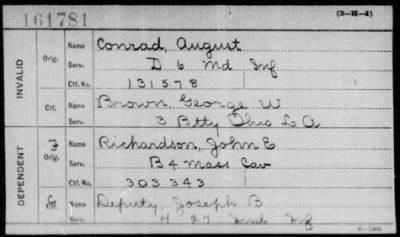 161781
(3-H-4)
INVALID
Orig.
Name Conrad, August
Serv. D 6 Md Inf
Ctf. No. 131578
Ctf.
Name Brown, George W
Serv. 3 Btty Ohio L A
DEPENDENT
Orig.
Name Richardson, John E
Serv. B 4 Mass Cav
Ctf. No. 303343
Ctf.
Name Deputy, Joseph B
Serv. H 27 Inf